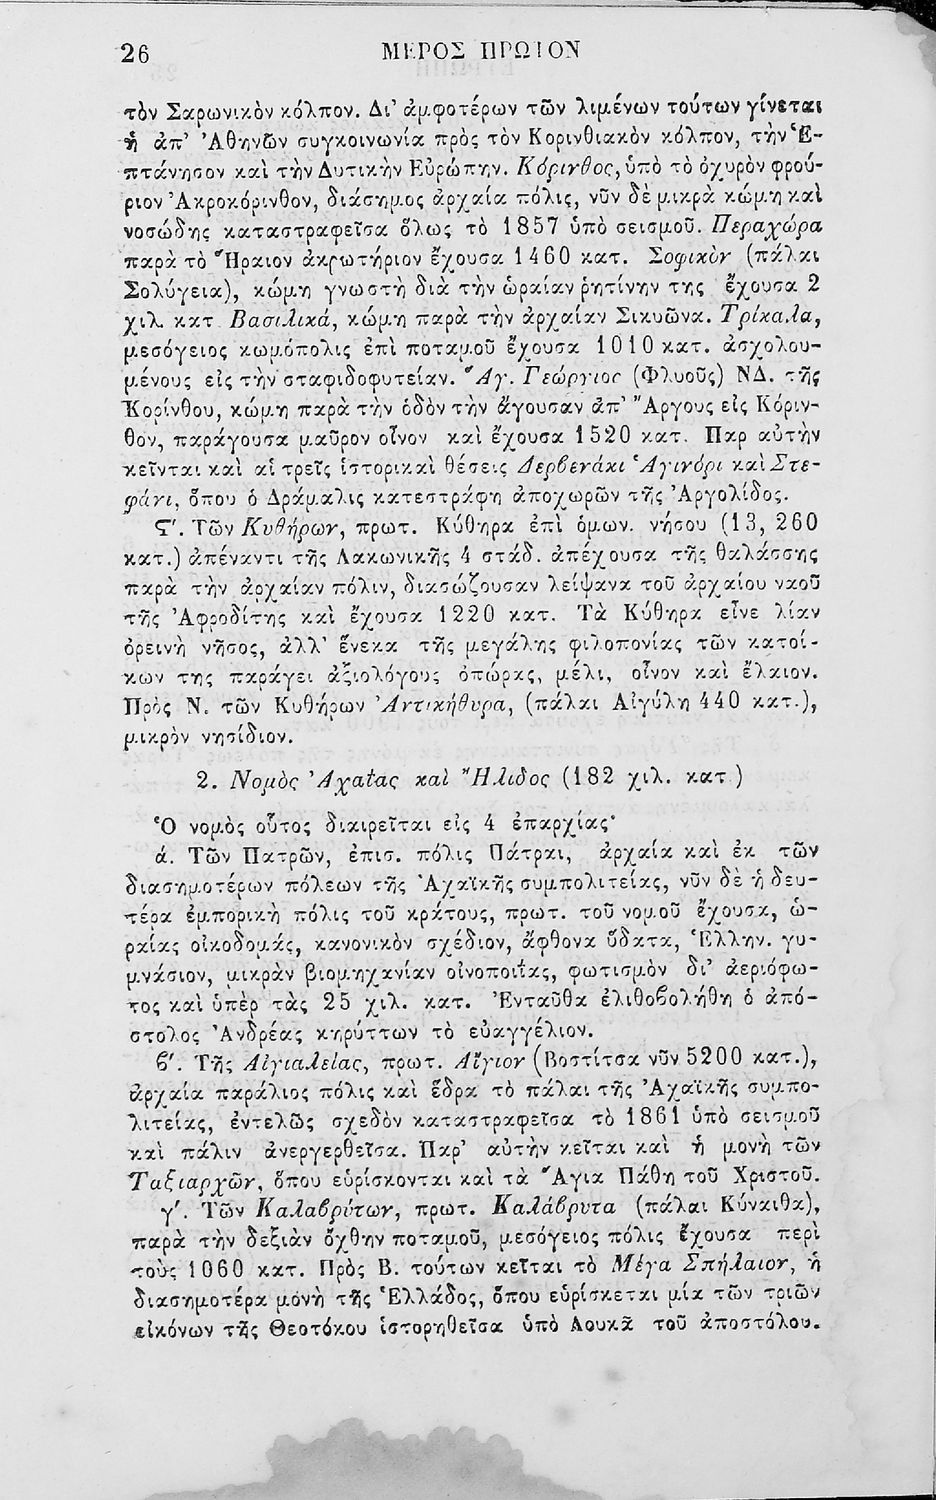 26 ΜΕΡΟΣ ΠΡΩΤΟΝ
τὸν Σαρωνικὸν κόλπον. Δι’ ἀμφοτέρων τῶν λιμένων τούτων γίνεται
ἡ ἀπ’ Ἀθηνῶν συγκοινωνία πρὸς τὸν Κορινθιακὸν κόλπον, τὴν Ἑ-
πτάνησον καὶ τὴν Δυτικὴν Εὐρώπην. Κόρινθος, ὑπὸ τὸ ὀχυρὸν φρού-
ριον Ἀκροκόρινθον, διάσημος ἀρχαία πόλις, νῦν δὲ μικρὰ κώμη καὶ
νοσώδης καταστραφεῖσα ὅλως τὸ 1857 ὑπὸ σεισμοῦ. Περαχώρα
παρὰ τὸ Ἥραιον ἀκρωτήριον ἔχουσα 1460 κατ. Σοφικὸν (πάλαι
Σολύγεια), κώμη γνωστὴ διὰ τὴν ὡραίαν ῥητίνην της ἔχουσα 2
χιλ. κατ Βασιλικά, κώμη παρὰ τὴν ἀρχαίαν Σικυῶνα. Τρίκαλα,
μεσόγειος κωμόπολις ἐπὶ ποταμοῦ ἔχουσα 1010 κατ. ἀσχολου-
μένους εἰς τὴν σταφιδοφυτείαν. Ἅγ. Γεώργιος (Φλυοῦς) ΝΔ. τῆς
Κορίνθου, κώμη παρὰ τὴν ὁδὸν τὴν ἄγουσαν ἀπ’ Ἄργους εἰς Κόριν-
θον, παράγουσα μαῦρον οἶνον καὶ ἔχουσα 1520 κατ. Παρ αὐτὴν
κεῖνται καὶ αἱ τρεῖς ἱστορικαὶ θέσεις Δερβενάκι Ἁγινόρι καὶ Στε-
φάνι, ὅπου ὁ Δράμαλις κατεστράφη ἀποχωρῶν τῆς Ἀργολίδος.
Ϛ′. Τῶν Κυθήρων, πρωτ. Κύθηρα ἐπὶ ὁμων. νήσου (13, 260
κατ.) ἀπέναντι τῆς Λακωνικῆς 4 στάδ. ἀπέχουσα τῆς θαλάσσης
παρὰ τὴν ἀρχαίαν πόλιν, διασώζουσαν λείψανα τοῦ ἀρχαίου ναοῦ
τῆς Ἀφροδίτης καὶ ἔχουσα 1220 κατ. Τὰ Κύθηρα εἶνε λίαν
ὀρεινὴ νῆσος, ἀλλ’ ἕνεκα τῆς μεγάλης φιλοπονίας τῶν κατοί-
κων της παράγει ἀξιολόγους ὀπώρας, μέλι, οἶνον καὶ ἔλαιον.
Πρὸς Ν. τῶν Κυθήρων Ἀντικήθυρα, (πάλαι Αἰγύλη 440 κατ.),
μικρὸν νησίδιον.
2. Νομὸς Ἀχαΐας καὶ Ἤλιδος (182 χιλ. κατ.)
Ὁ νομὸς οὗτος διαιρεῖται εἰς 4 ἐπαρχίας·
ά. Τῶν Πατρῶν, ἐπισ. πόλις Πάτραι, ἀρχαία καὶ ἐκ τῶν
διασημοτέρων πόλεων τῆς Ἀχαϊκῆς συμπολιτείας, νῦν δὲ ἡ δευ-
τέρα ἐμπορικὴ πόλις τοῦ κράτους, πρωτ. τοῦ νομοῦ ἔχουσα, ὡ-
ραίας οἰκοδομάς, κανονικὸν σχέδιον, ἄφθονα ὕδατα, Ἑλλην. γυ-
μνάσιον, μικρὰν βιομηχανίαν οἰνοποιΐας, φωτισμὸν δι’ ἀεριόφω-
τος καὶ ὑπὲρ τὰς 25 χιλ. κατ. Ἐνταῦθα ἐλιθοβολήθη ὁ ἀπό-
στολος Ἀνδρέας κηρύττων τὸ εὐαγγέλιον.
β′. Τῆς Αἰγιαλείας, πρωτ. Αἴγιον (Βοστίτσα νῦν 5200 κατ.),
ἀρχαία παράλιος πόλις καὶ ἕδρα τὸ πάλαι τῆς Ἀχαϊκῆς συμπο-
λιτείας, ἐντελῶς σχεδὸν καταστραφεῖσα τὸ 1861 ὑπὸ σεισμοῦ
καὶ πάλιν ἀνεργερθεῖσα. Παρ’ αὐτὴν κεῖται καὶ ἡ μονὴ τῶν
Ταξιαρχῶν, ὅπου εὑρίσκονται καὶ τὰ Ἅγια Πάθη τοῦ Χριστοῦ.
γ′. Τῶν Καλαβρύτων, πρωτ. Καλάβρυτα (πάλαι Κύναιθα),
παρὰ τὴν δεξιὰν ὄχθην ποταμοῦ, μεσόγειος πόλις ἔχουσα περὶ
τοὺς 1060 κατ. Πρὸς Β. τούτων κεῖται τὸ Μέγα Σπήλαιον, ἡ
διασημοτέρα μονὴ τῆς Ἑλλάδος, ὅπου εὑρίσκεται μία τῶν τριῶν
εἰκόνων τῆς Θεοτόκου ἱστορηθεῖσα ὑπὸ Λουκᾶ τοῦ ἀποστόλου.